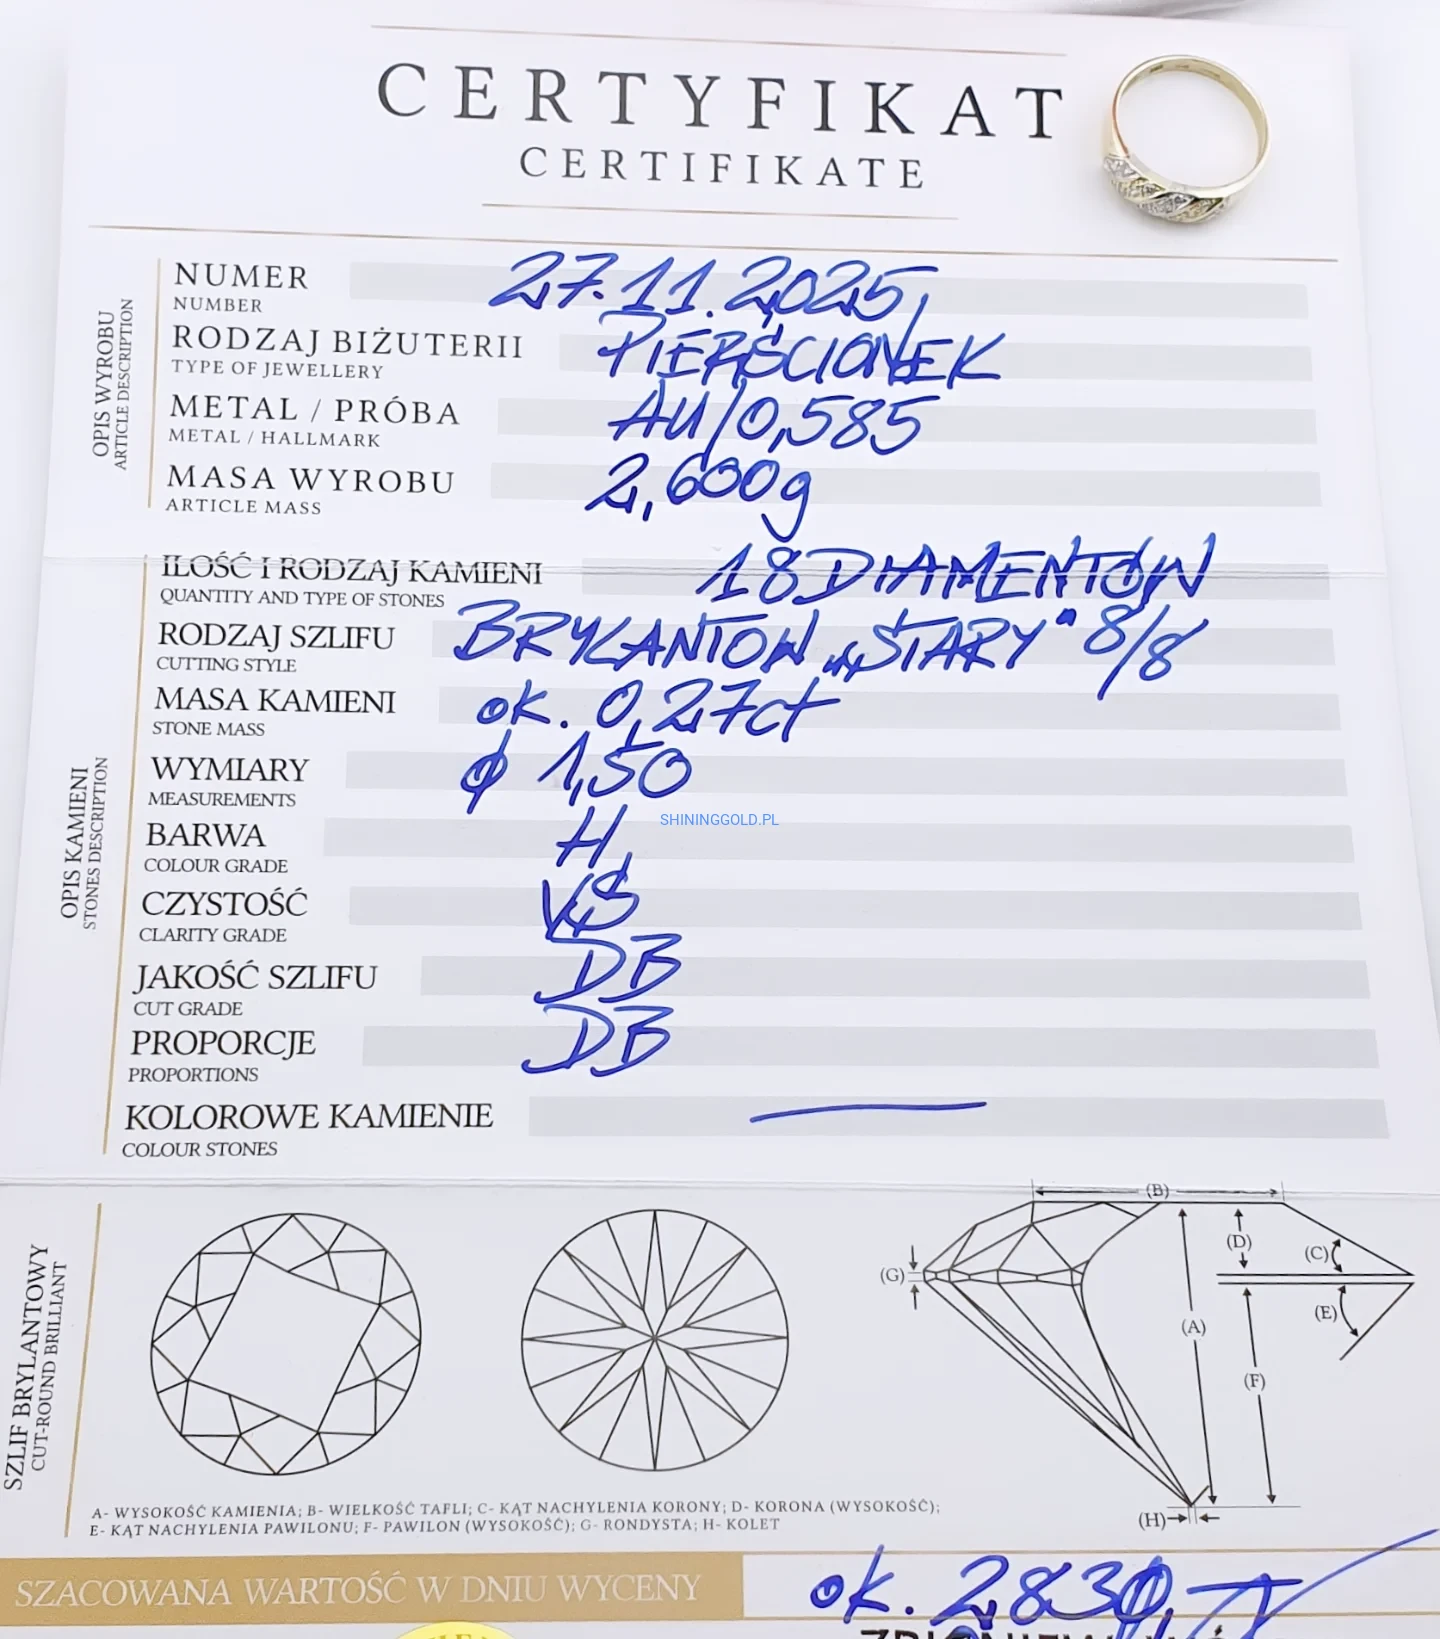 CERTYFIKAT
CERTIFIKATE
OPIS WYROBU
ARTICLE DESCRIPTION
NUMER 27.11.2025,
NUMBER
RODZAJ BIŻUTERII PIERŚCIONEK
TYPE OF JEWELLERY
METAL / PRÓBA AU/0,585
METAL / HALLMARK
MASA WYROBU 2,600g
ARTICLE MASS
OPIS KAMIENI
STONES DESCRIPTION
ILOŚĆ I RODZAJ KAMIENI 18 DIAMENTÓW
QUANTITY AND TYPE OF STONES
RODZAJ SZLIFU BRYLANTOW „STARY" 8/8
CUTTING STYLE
MASA KAMIENI ok. 0,27ct
STONE MASS
WYMIARY ϕ 1,50
MEASUREMENTS
SHININGGOLD.PL
BARWA H
COLOUR GRADE
CZYSTOŚĆ VS
CLARITY GRADE
JAKOŚĆ SZLIFU DB
CUT GRADE
PROPORCJE DB
PROPORTIONS
KOLOROWE KAMIENIE
COLOUR STONES
SZLIF BRYLANTOWY
CUT-ROUND BRILLIANT
(B)
(D)
(C)
(G)
(E)
(A)
(F)
(H)
A- WYSOKOŚĆ KAMIENIA; B- WIELKOŚĆ TAFLI; C- KĄT NACHYLENIA KORONY; D- KORONA (WYSOKOŚĆ);
E- KĄT NACHYLENIA PAWILONU; F- PAWILON (WYSOKOŚĆ); G- RONDYSTA; H- KOLET
SZACOWANA WARTOŚĆ W DNIU WYCENY ok. 2830,